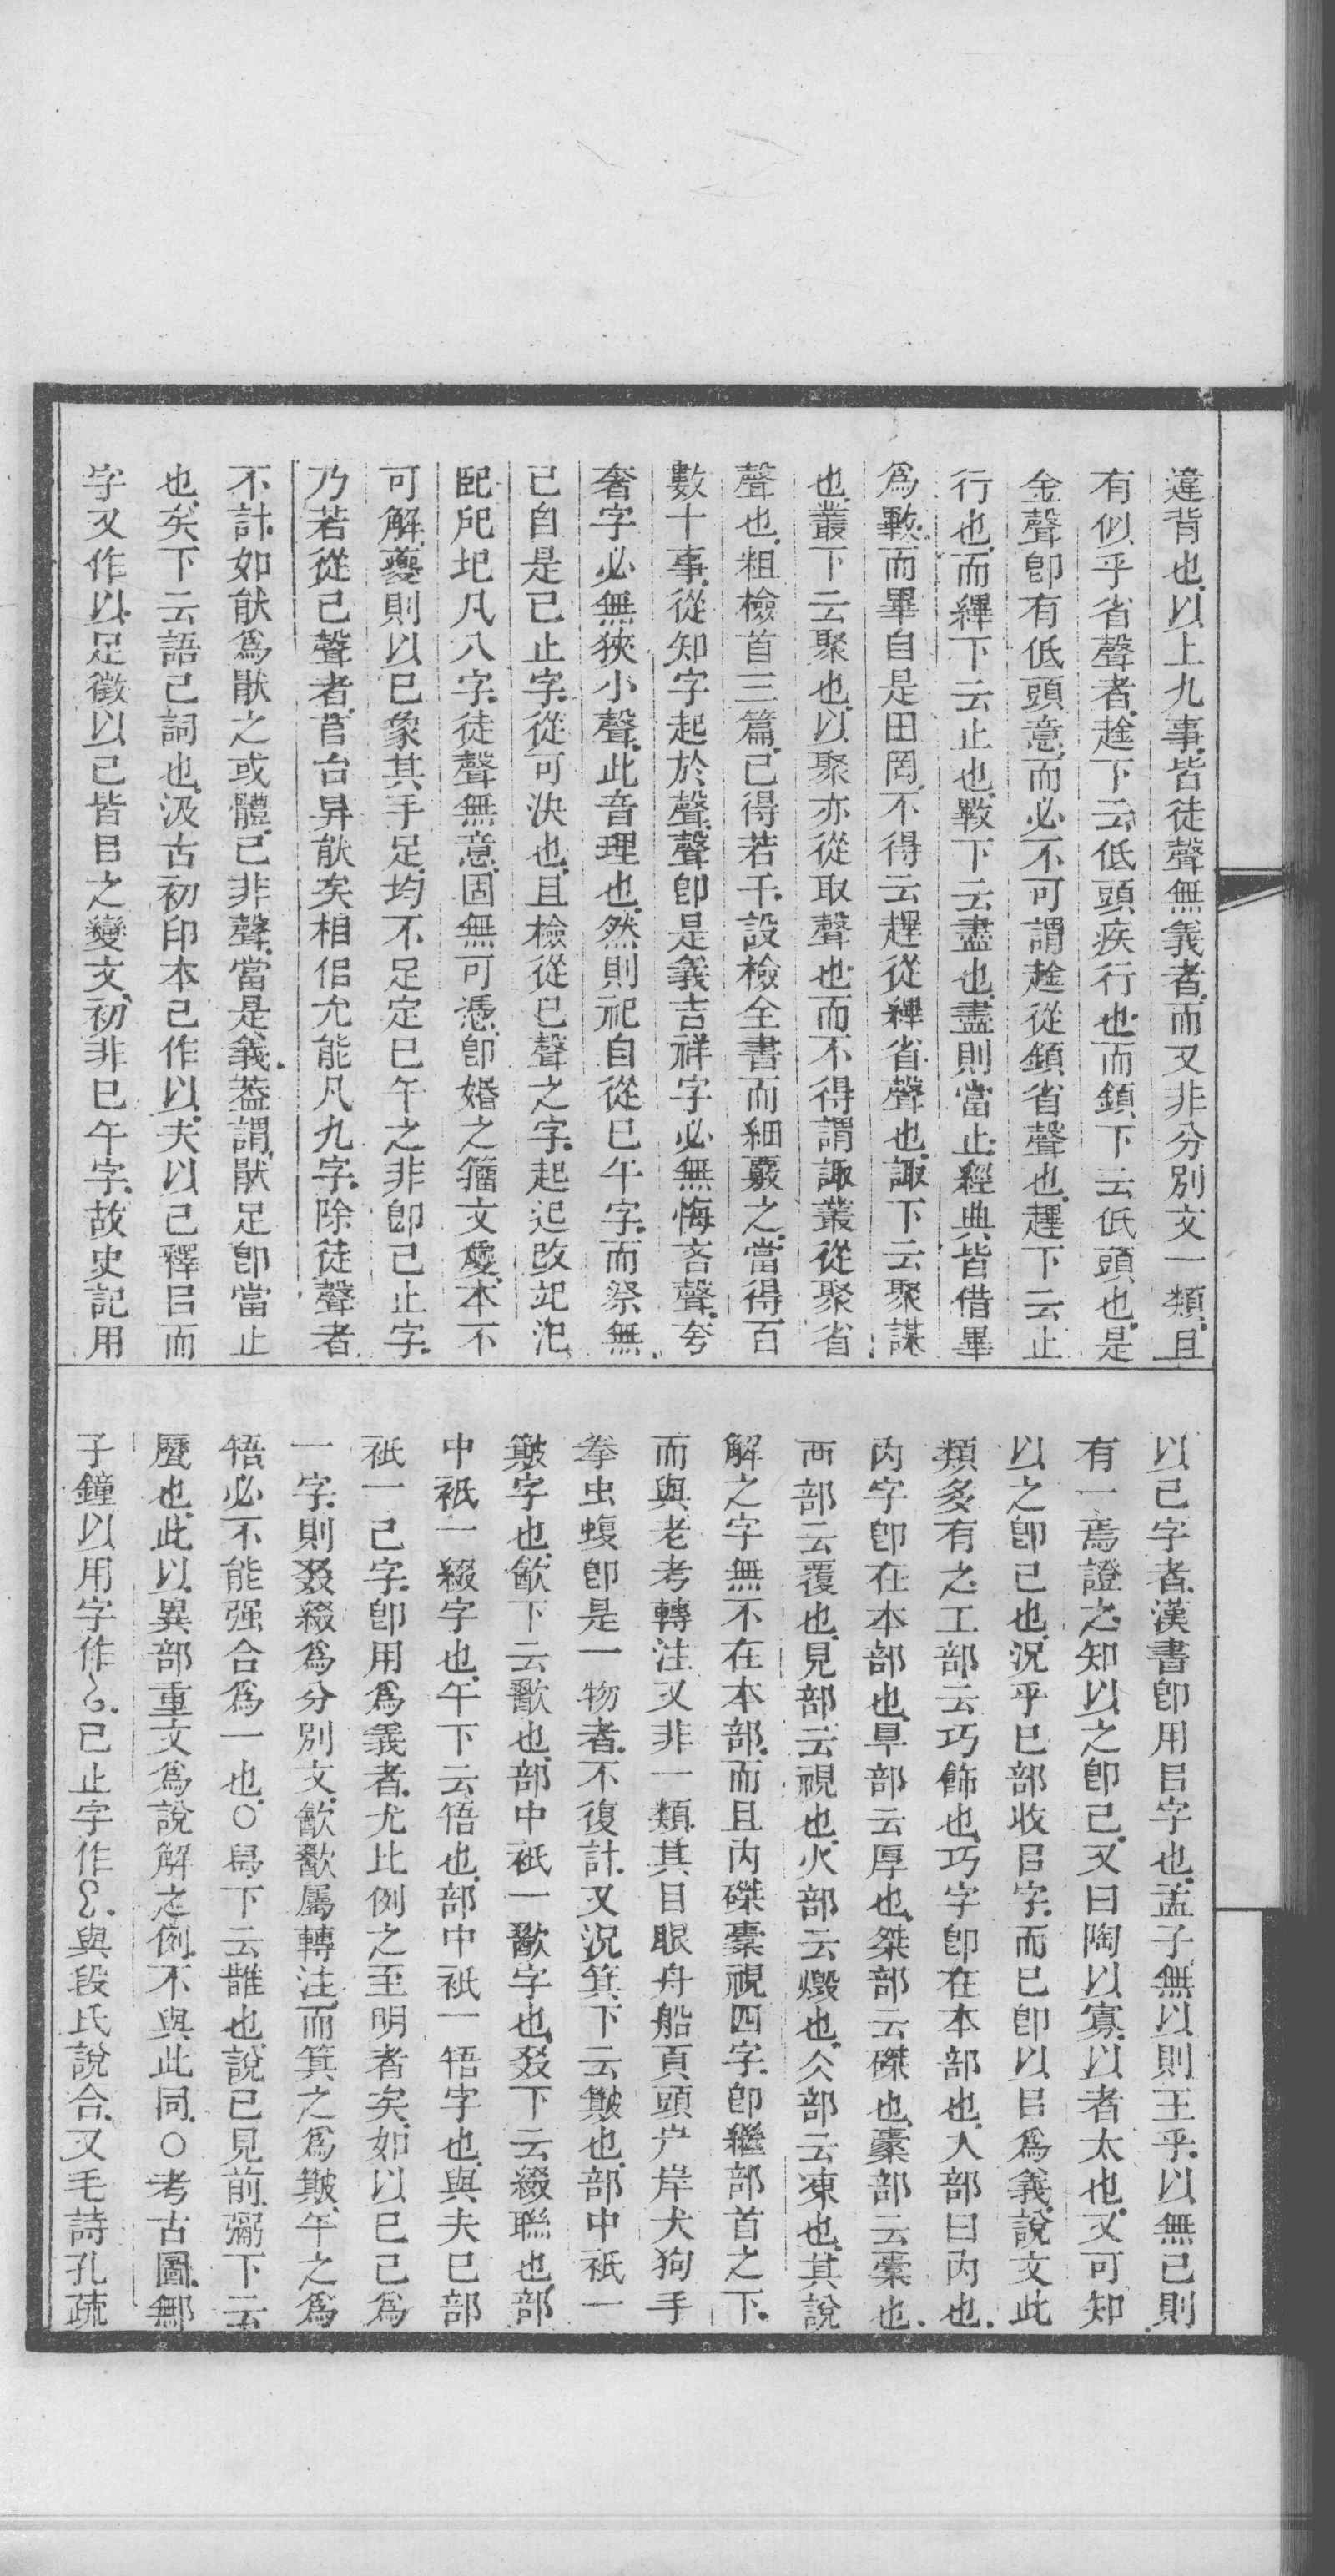 違背也以上九事皆徒聲無義者而又非分別文一類且
有似乎省聲者趛下云低頭疾行也而顉下云低頭也是
金聲卽有低頭意而必不可謂趛從顉省聲也趩下云止
行也而縪下云止也斁下云盡也盡則當止經典皆借畢
爲斁而畢自是田罔不得云趩從縪省聲也諏下云聚謀
也叢下云聚也以聚亦從取聲也而不得謂諏叢從聚省
聲也粗檢首三篇已得若干設檢全書而細覈之當得百
數十事從知字起於聲聲卽是義吉祥字必無悔吝聲夸
奢字必無狹小聲此音理也然則祀自從巳午字而祭無
已自是已止字從可決也且檢從巳聲之字起改圯汜
圮凡八字徒聲無意固無可憑卽婚之籒文本不
可解夔則以巳象其手足均不足定巳午之非卽已止字
乃若從㠯聲者台矣相侣允能凡九字除徒聲者
不計如猒之或體㠯非聲當是義葢謂猒足卽當止
也矣下云語已詞也汲古初印本已作以夫以已釋㠯而
字又作以足徵以已皆㠯之變文初非巳午字故史記用
以已字者漢書卽用㠯字也孟子無以則王乎以無已則
有一焉證之知以之卽已又曰陶以寡以者太也又可知
以之卽已也況乎巳部收㠯字而巳卽以㠯爲義說文此
類多有之工部云巧飾也巧字卽在本部也入部曰內也
內字卽在本部也㫗部云厚也桀部云磔也部云橐也
襾部云覆也見部云視也火部云燬也仌部云凍也其說
解之字無不在本部而且內磔橐視四字卽繼部首之下
而與老考轉注又非一類其目眼舟船頁頭屵岸犬狗手
拳虫蝮卽是一物者不復計又況箕下云簸也部中衹一
簸字也㱃下云歠也部中衹一歠字也叕下云綴聯也部
中衹一綴字也午下云啎也部中衹一啎字也與夫巳部
衹一㠯字卽用爲義者尤比例之至明者矣如以巳已爲
一字則叕綴爲分別文㱃歠屬轉注而箕之爲簸午之爲
啎必不能强合爲一也○舄下云誰也說已見前下云
也此以異部重文爲說解之例不與此同○考古圖
子鐘以用字作已止字作與段氏說合又毛詩孔疏